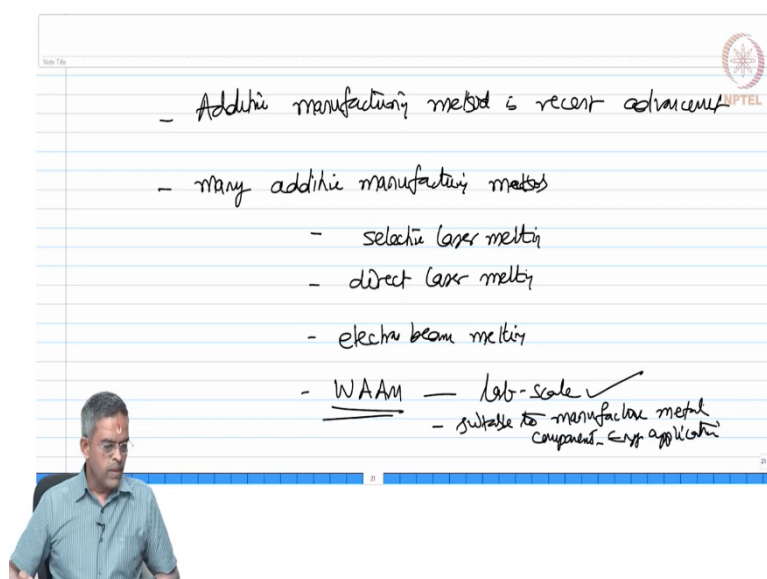 Note Title
NPTEL
- Additive manufacturing method is recent advancement
- Many additive manufacturing methods
- selective laser melting
- direct laser melting
- electron beam melting
- WAAM — Lab-scale ✓
- suitable to manufacture metal
component - Engg application
21
21